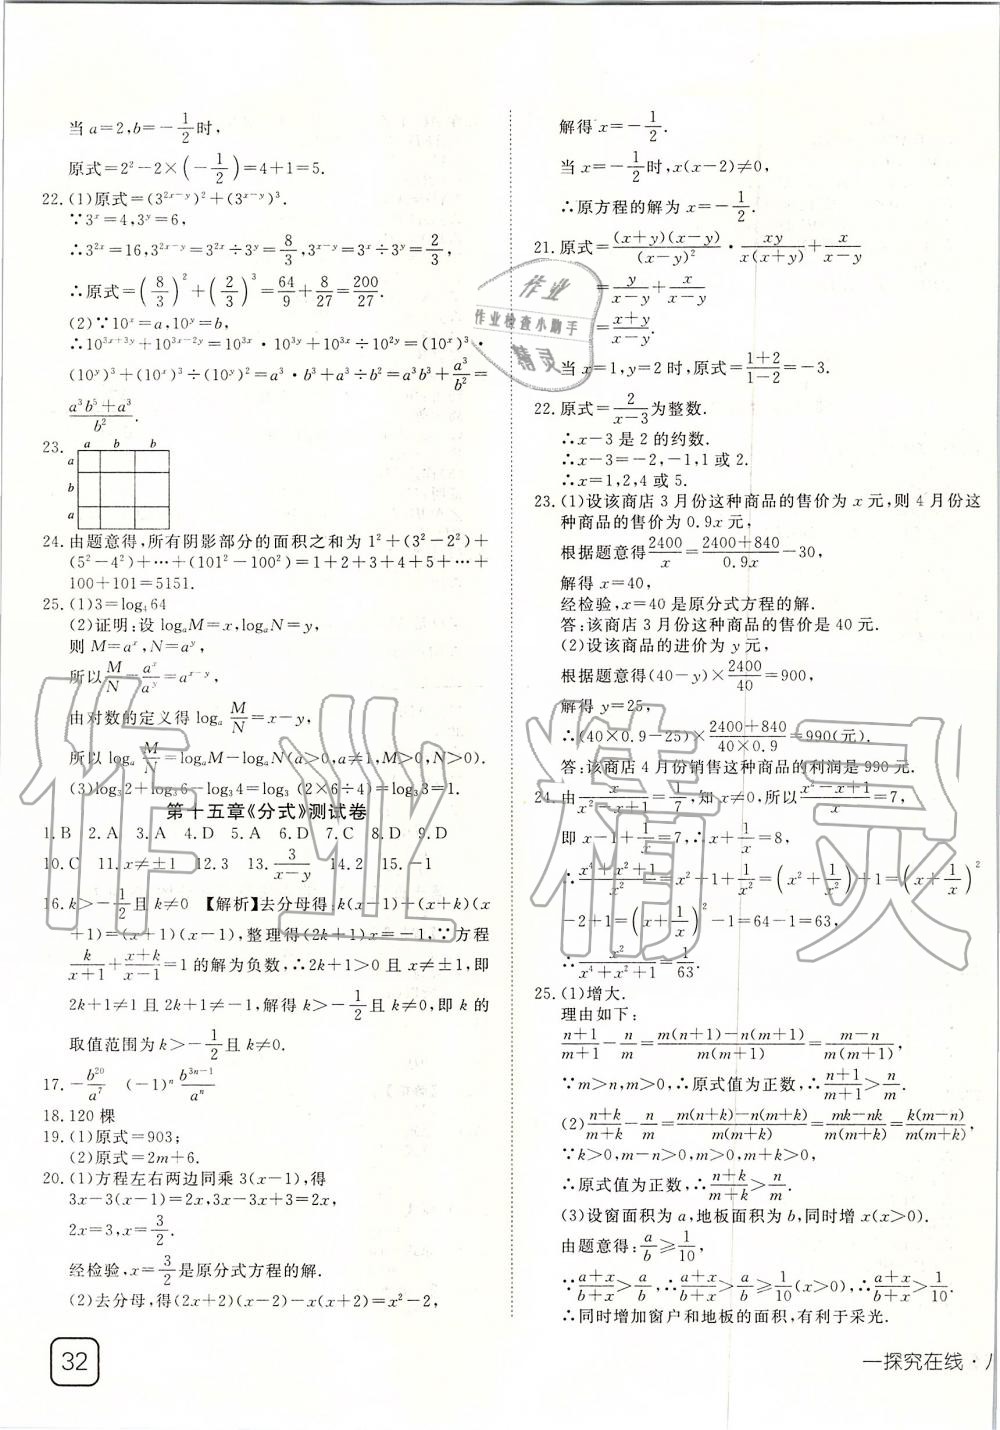 当a=2,b=-1/2时,
原式=2²-2×(-1/2)=4+1=5.
22.(1)原式=(3^{2x-y})²+(3^{x-y})³.
∵3^x=4,3^y=6,
∴3^{2x}=16,3^{2x-y}=3^{2x}÷3^y=8/3,3^{x-y}=3^x÷3^y=2/3,
∴原式=(8/3)²+(2/3)³=64/9+8/27=200/27.
(2)∵10^x=a,10^y=b,
∴10^{3x+3y}+10^{3x-2y}=10^{3x}·10^{3y}+10^{3x}÷10^{2y}=(10^x)³·
(10^y)³+(10^x)³÷(10^y)²=a³·b³+a³÷b²=a³b³+a³/b²=
(a³b⁵+a³)/b².
23. a b b
a
b
a
24.由题意得,所有阴影部分的面积之和为1²+(3²-2²)+
(5²-4²)+…+(101²-100²)=1+2+3+4+5+…+
100+101=5151.
25.(1)3=log₄64
(2)证明:设logₐM=x,logₐN=y,
则M=a^x,N=a^y,
所以M/N=a^x/a^y=a^{x-y},
由对数的定义得logₐ M/N=x-y,
所以logₐ M/N=logₐM-logₐN(a>0,a≠1,M>0,N>0).
(3)log₃2+log₃6-log₃4=log₃(2×6÷4)=log₃3=1.
第十五章《分式》测试卷
1.B 2.A 3.A 4.D 5.A 6.D 7.C 8.D 9.D
10.C 11.x≠±1 12.3 13.3/(x-y) 14.2 15.-1
16.k>-1/2且k≠0 【解析】去分母得:k(x-1)+(x+k)(x
+1)=(x+1)(x-1),整理得(2k+1)x=-1,∵方程
k/(x+1)+(x+k)/(x-1)=1的解为负数,∴2k+1>0且x≠±1,即
2k+1≠1且2k+1≠-1,解得k>-1/2且k≠0,即k的
取值范围为k>-1/2且k≠0.
17.-b²⁰/a⁷ (-1)ⁿ b^{3n-1}/aⁿ
18.120棵
19.(1)原式=903;
(2)原式=2m+6.
20.(1)方程左右两边同乘3(x-1),得
3x-3(x-1)=2x,3x-3x+3=2x,
2x=3,x=3/2.
经检验,x=3/2是原分式方程的解.
(2)去分母,得(2x+2)(x-2)-x(x+2)=x²-2,
32
解得x=-1/2.
当x=-1/2时,x(x-2)≠0,
∴原方程的解为x=-1/2.
21.原式=(x+y)(x-y)/(x-y)²·xy/x(x+y)+x/(x-y)
=y/(x-y)+x/(x-y)
=(x+y)/(x-y).
当x=1,y=2时,原式=(1+2)/(1-2)=-3.
22.原式=2/(x-3)为整数.
∴x-3是2的约数.
∴x-3=-2,-1,1或2.
∴x=1,2,4或5.
23.(1)设该商店3月份这种商品的售价为x元,则4月份这
种商品的售价为0.9x元,
根据题意得2400/x=(2400+840)/0.9x-30,
解得x=40,
经检验,x=40是原分式方程的解.
答:该商店3月份这种商品的售价是40元.
(2)设该商品的进价为y元,
根据题意得(40-y)×2400/40=900,
解得y=25,
∴(40×0.9-25)×(2400+840)/(40×0.9)=990(元).
答:该商店4月份销售这种商品的利润是990元.
24.由x/(x²-x+1)=1/7,知x≠0,所以(x²-x+1)/x=7,
即x-1+1/x=7,∴x+1/x=8,
∴(x⁴+x²+1)/x²=x²+1+1/x²=(x²+1/x²)+1=(x+1/x)²
-2+1=(x+1/x)²-1=64-1=63,
∴x²/(x⁴+x²+1)=1/63.
25.(1)增大.
理由如下:
(n+1)/(m+1)-n/m=(m(n+1)-n(m+1))/m(m+1)=(m-n)/m(m+1),
∵m>n,m>0,∴原式值为正数,∴(n+1)/(m+1)>n/m.
(2)(n+k)/(m+k)-n/m=(m(n+k)-n(m+k))/m(m+k)=(mk-nk)/m(m+k)=k(m-n)/m(m+k)
∵k>0,m-n>0,m>0,m+k>0,
∴原式值为正数,∴(n+k)/(m+k)>n/m.
(3)设窗面积为a,地板面积为b,同时增x(x>0).
由题意得:a/b≥1/10,
∵(a+x)/(b+x)>a/b,∴(a+x)/(b+x)>a/b≥1/10(x>0),∴(a+x)/(b+x)>1/10.
∴同时增加窗户和地板的面积,有利于采光.
一探究在线·八
作业
作业检查小助手
精灵
作业精灵